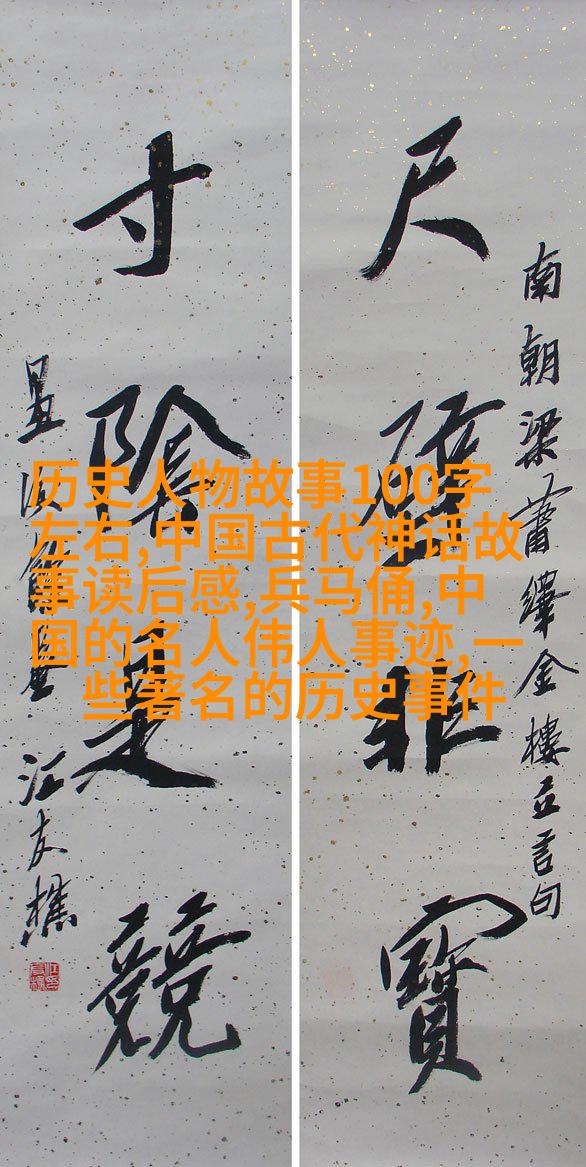 南朝梁蕭繹金樓立言句
尺璧非寶
寸陰是競
江友樵
历史人物故事100字
左右,中国古代神话故
事读后感,兵马俑,中
国的名人伟人事迹,一
些著名的历史事件